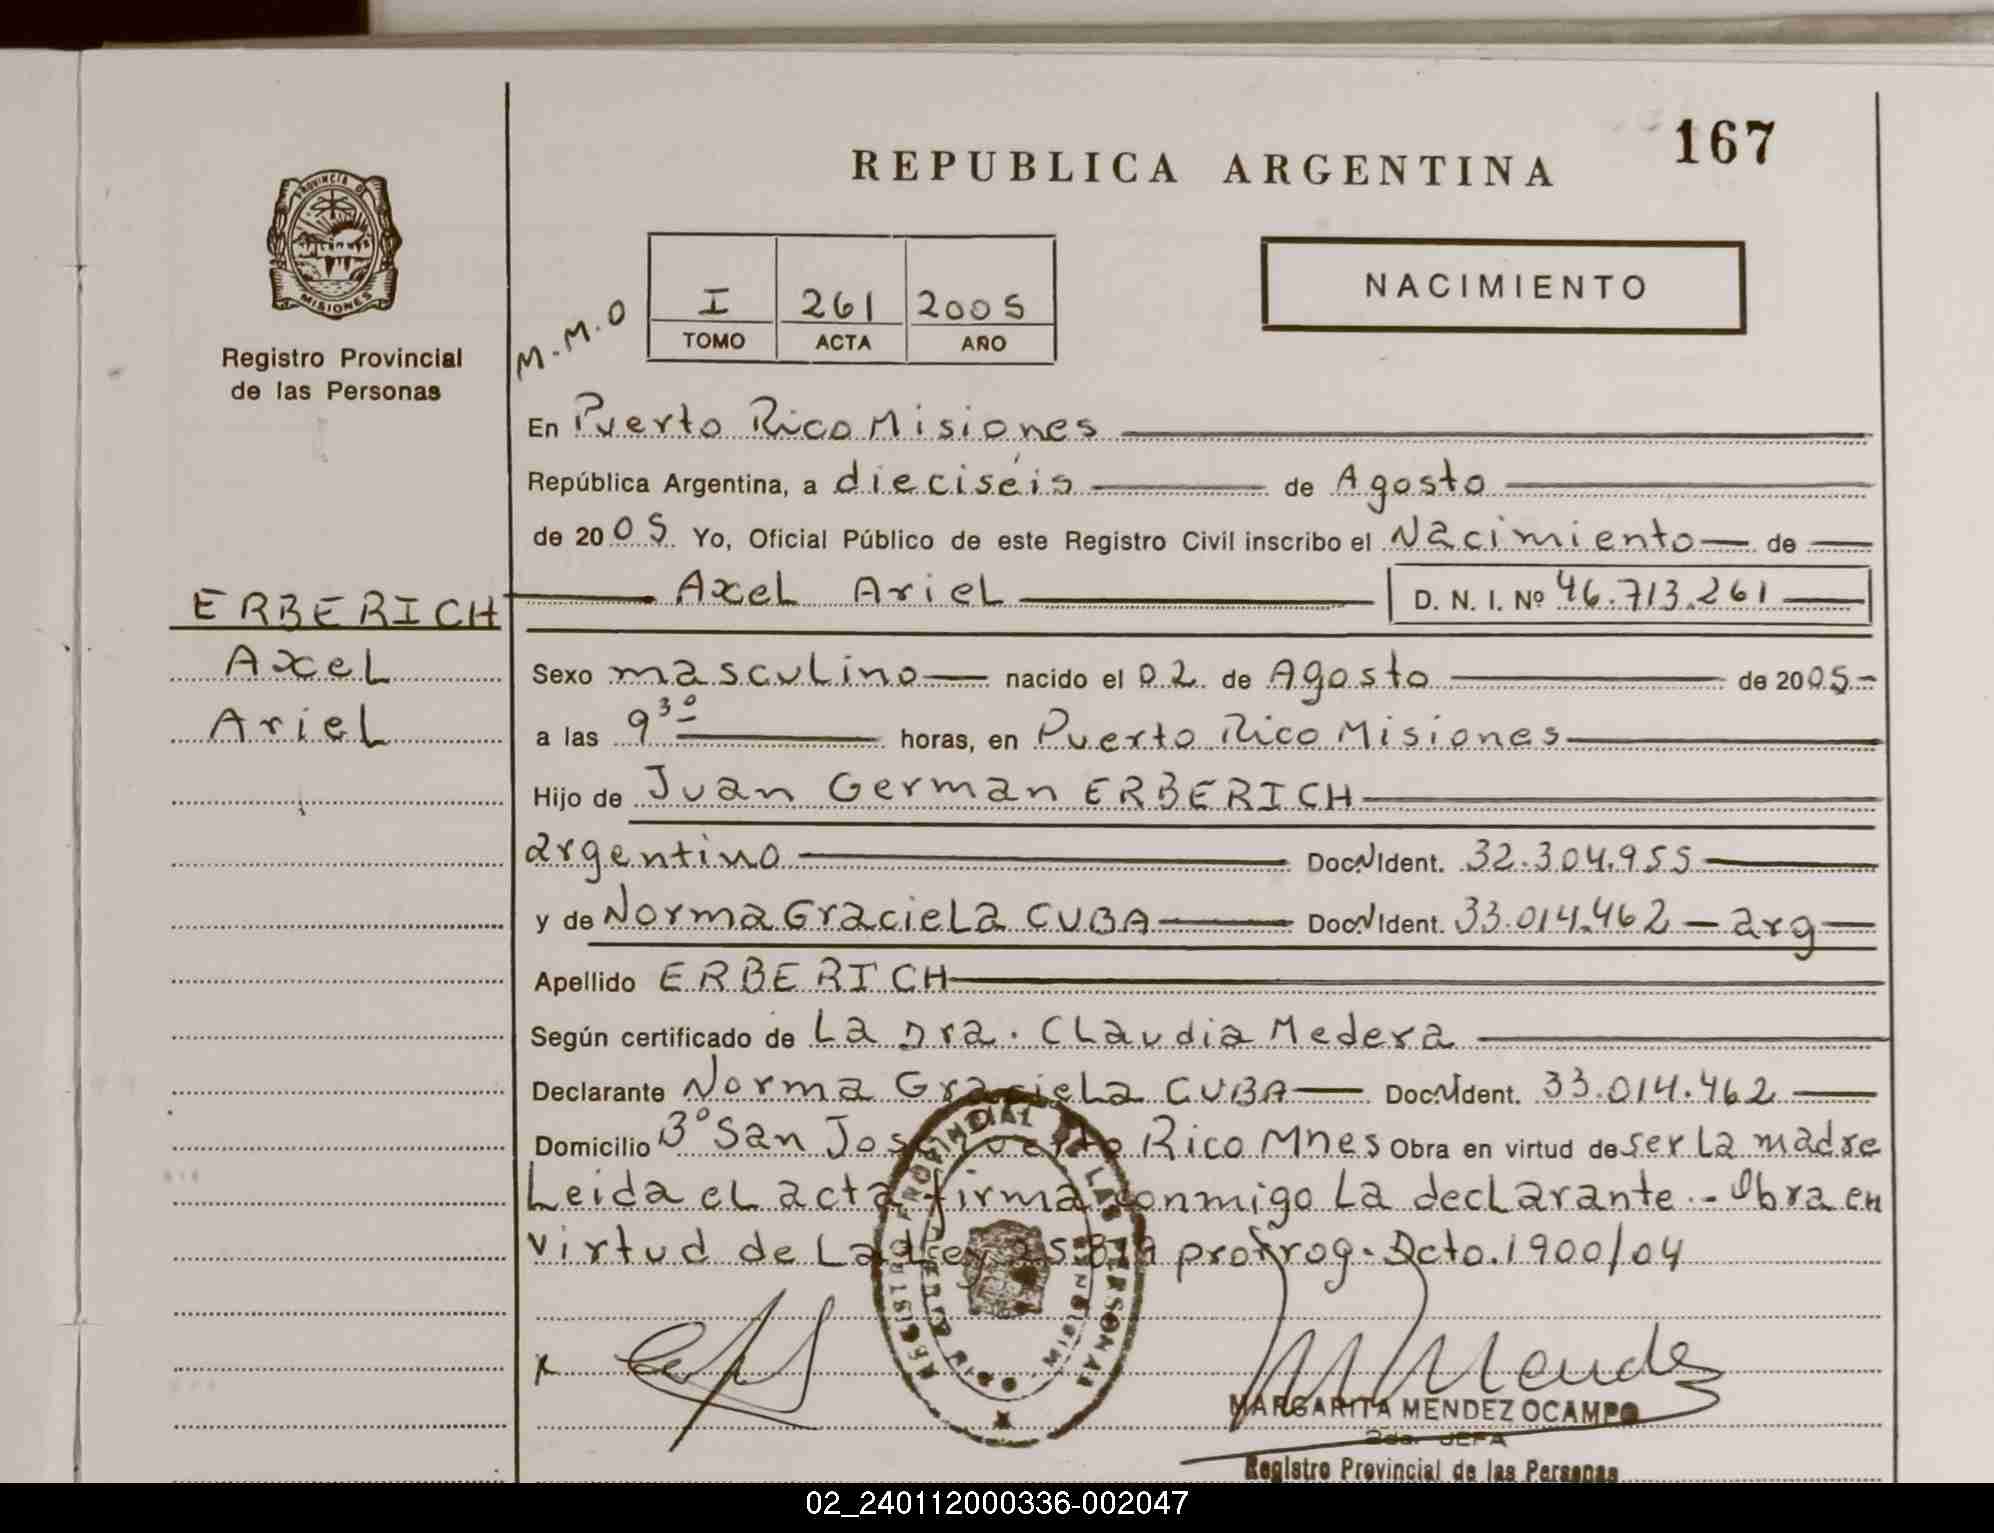 167
REPUBLICA ARGENTINA
PROVINCIA D
MISIONES
Registro Provincial
de las Personas
M.M.O
I 261 2005
TOMO ACTA AÑO
NACIMIENTO
En Puerto Rico Misiones
República Argentina, a dieciséis de Agosto
de 2005 Yo, Oficial Público de este Registro Civil inscribo el Nacimiento de
Axel Ariel D. N. I. Nº 46.713.261
ERBERICH
Axel
Ariel
Sexo masculino nacido el 02 de Agosto de 2005
a las 9³⁰ horas, en Puerto Rico Misiones
Hijo de Juan German ERBERICH
argentino Doc.N Ident. 32.304.955
y de Norma Graciela CUBA Doc.N Ident. 33.014.462 - arg
Apellido ERBERICH
Según certificado de La Dra. Claudia Medera
Declarante Norma Graciela CUBA Doc.N Ident. 33.014.462
Domicilio Bº San José Puerto Rico Mnes Obra en virtud de ser La madre
Leida el acta firma conmigo La declarante.- Obra en
virtud de La Ley 25.819 prorrog. Dcto. 1900/04
REGISTRO PROVINCIAL DE LAS PERSONAS
x
MARGARITA MENDEZ OCAMPO
2da. JEFA
Registro Provincial de las Personas
02_240112000336-002047